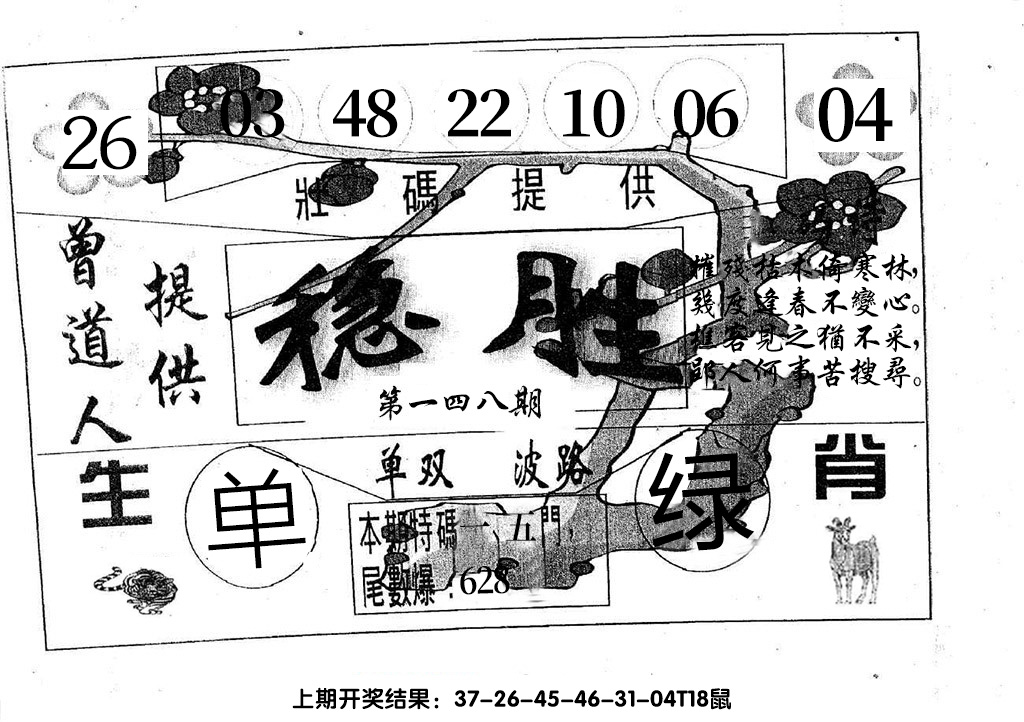 26 03 48 22 10 06 04
壯碼提供
特
曾道人
提供
稳胜
第一四八期
摧殘枯木倚寒林，
幾度逢春不變心。
樵客見之猶不采，
郢人何事苦搜尋。
生肖
单双 波路
单
绿
本期特碼一、五門，
尾數爆：628
上期开奖结果：37-26-45-46-31-04T18鼠